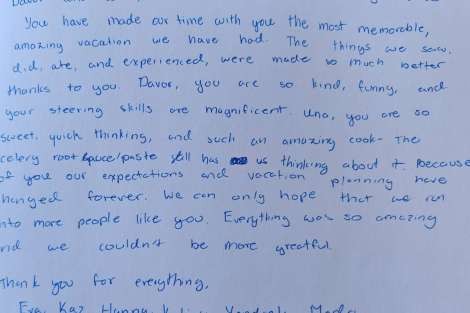 You have made our time with you the most memorable,
amazing vacation we have had. The things we saw,
did, ate, and experienced, were made so much better
thanks to you. Davor, you are so kind, funny, and
your steering skills are magnificent. Una, you are so
sweet, quick thinking, and such an amazing cook- The
celery root sauce/paste still has us thinking about it. Because
of you our expectations and vacation planning have
hanged forever. We can only hope that we run
nto more people like you. Everything was so amazing
nd we couldn't be more greatful.
Thank you for everything,
Eva, Kaz